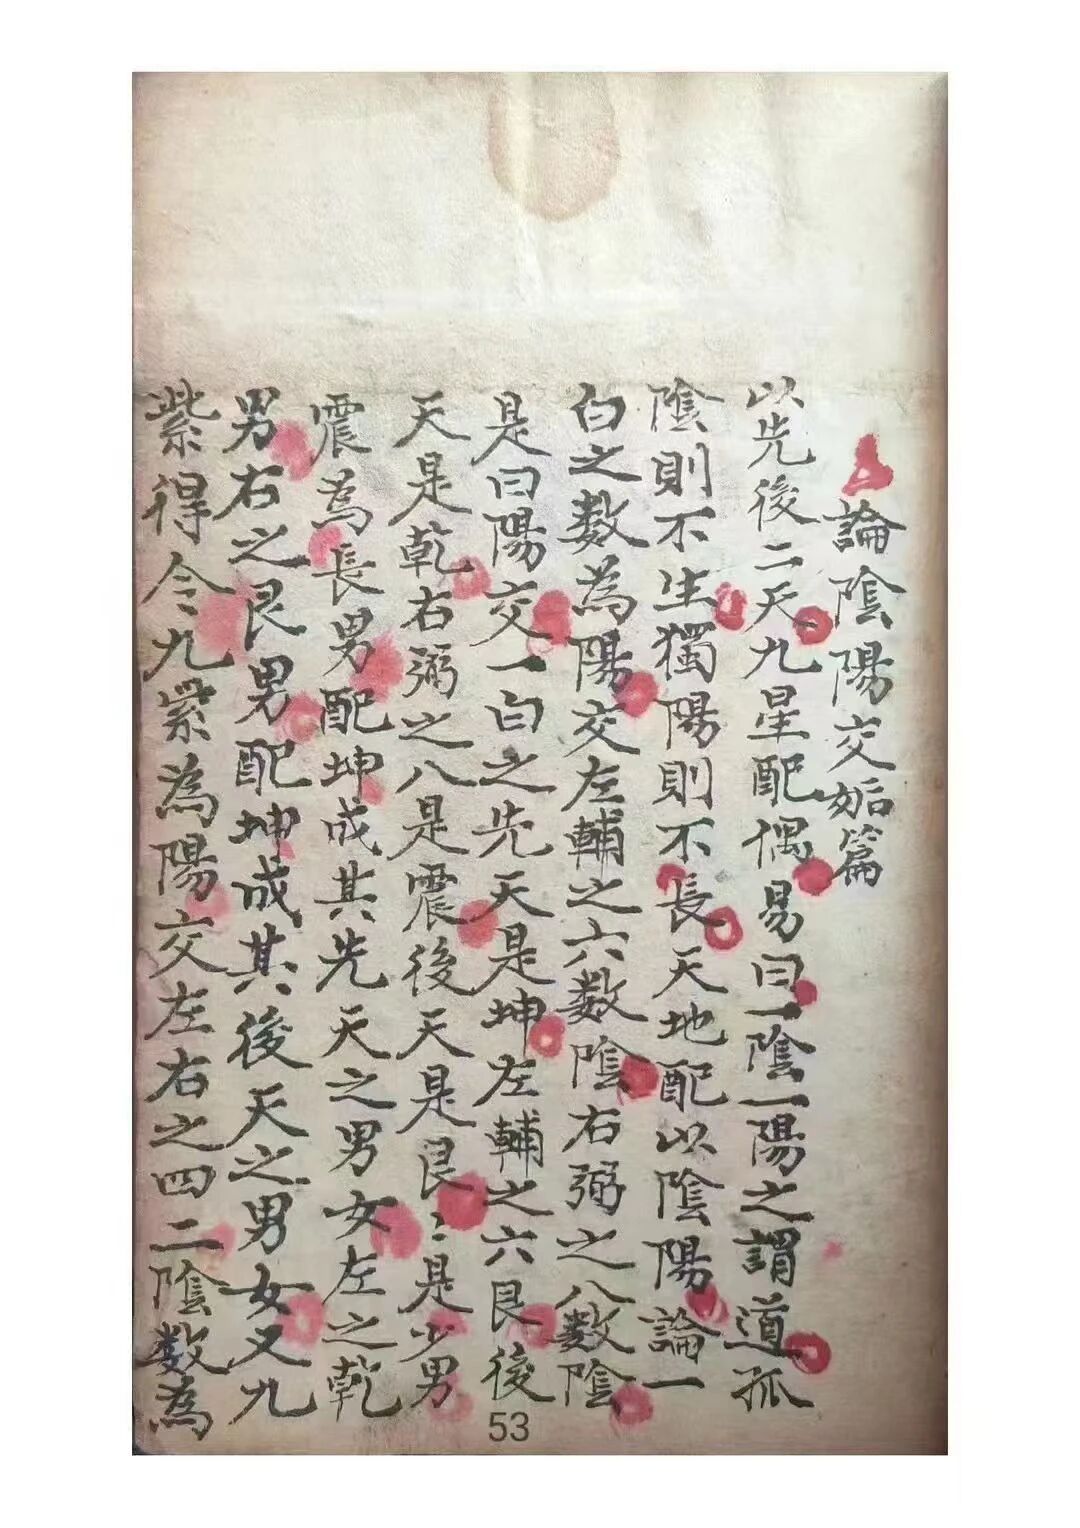 論陰陽交姤篇
以先後二天九星配偶易曰一陰一陽之謂道孤
陰則不生獨陽則不長天地配以陰陽論一
白之数為陽交左輔之六数陰右弼之八数陰
是曰陽交一白之先天是坤左輔之六艮後
天是乾右弼之八是震後天是艮〻是少男
震為長男配坤成其先天之男女左之乾
男右之艮男配坤成其後天之男女又九
紫得令九紫為陽交左右之四二陰数為
53